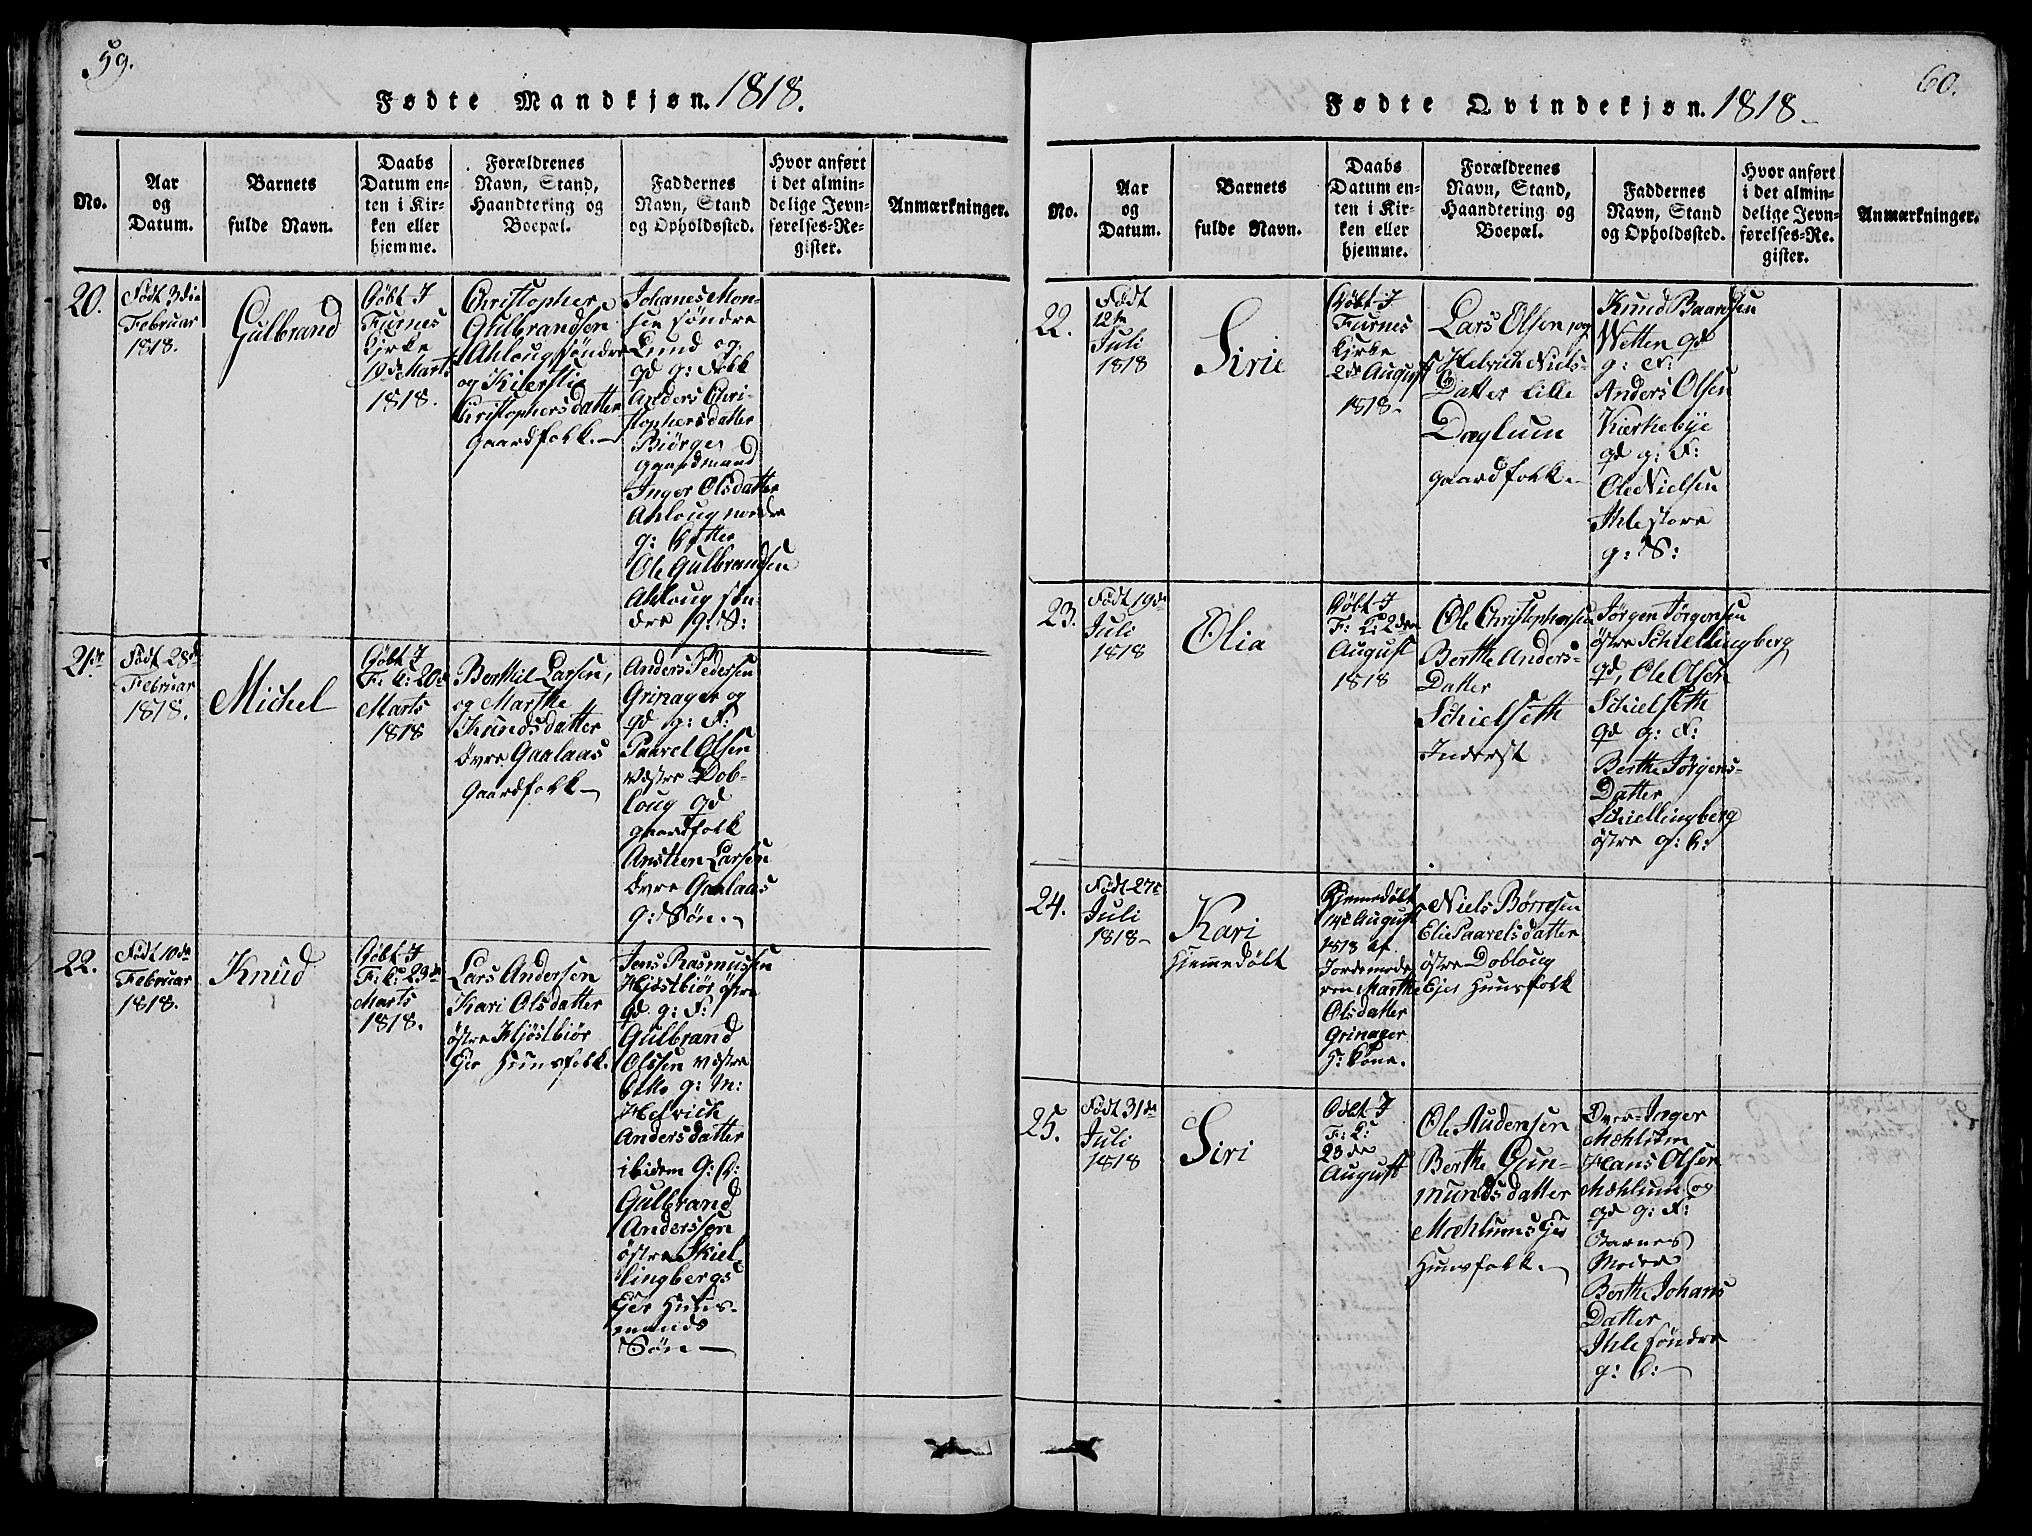 59.
Fødte Mandkjøn. 1818.
No.
Aar
og
Datum.
Barnets
fulde Navn.
Daabs
Datum en-
ten i Kir-
ken eller
hjemme.
Forældrenes
Navn, Stand,
Haandtering og
Boepæl.
Faddernes
Navn, Stand
og Opholdssted.
Hvor anført
i det almin-
delige Jevn-
førelses-Re-
gister.
Anmærkninger.
20.
Født 3die
Februar
1818.
Gulbrand
Døbt I
Furnes
Kirke
Marts
1818.
Christopher
Gulbrandsen
Ahloug søndre
og Kiersti
Christophersdatter
Gaardfolk.
Johanes Mon-
sen søndre
Lund og
qd g: Folk
Anders Chri-
stophersdatter
Biørge
gaardmand
Inger Olsdatter
Ahloug nordre
g: Datter
Ole Gulbrandsen
Ahloug søn-
dre g: S:
21de
Født 28de
Februar
1818.
Michel
Døbt I
F: K: 20de
Marts
1818
Berthil Larsen,
og Marthe
Knudsdatter
övre Gaalaas
Gaardfolk
Anders Pedersen
Grinager og
qd g: F:
Paavel Olsen
vestre Dob-
loug qd
gaardfolk
Ansteen Larsen
övre Gaalaas
g: Søn.
22.
Født 10de
Februar
1818.
Knud
Døbt I
F: K: 23de
Marts
1818.
Lars Andersen
Kari Olsdatter
østre Kjøstbiør
Eje Huusfolk.
Jens Rasmussen
Kjøstbiør østre
qd g: F:
Gulbrand
Olssen vestre
Ditto g: M:
Helvich
Andersdatter
ibidem g: D:
Gulbrand
Anderssøn
østre Skiel-
lingbergs
Eje Huus-
mands
Søn
60.
Fødte Qvindekjøn. 1818
No.
Aar
og
Datum.
Barnets
fulde Navn.
Daabs
Datum en-
ten i Kir-
ken eller
hjemme.
Forældrenes
Navn, Stand,
Haandtering og
Boepæl.
Faddernes
Navn, Stand
og Opholdssted.
Hvor anført
i det almin-
delige Jevn-
førelses-Re-
gister.
Anmærkninger.
22.
Født
12te
Juli
1818
Sirie
Døbt I
Furnes
Kirke
2de August
1818
Lars Olsen og
Helvich Niels-
Datter lille
Dæhlum
gaardfolk.
Knud Baardsen
Wetten qd
g: F:
Anders Olsen
Kirkebye
qd g: F:
Ole Nielsen
Ihle store
g: S:
23.
Født 19de
Juli
1818
Olia
Døbt I
F: K: 2den
August
1818
Ole Christophersen
Berthe Anders-
Datter
Schielseth
Inderst
Jørgen Jørgensen
östre Schiellingberg
qd, Ole Olsen
Schielseth
qd g: F:
Berthe Jørgens-
Datter
Schiellingberg
østre g: D:
24.
Født 27de
Juli
1818
Kari
Hjemmedøbt
Hjemmedøbt
14de August
1818 af
Jordemode-
ren Marthe
Olsdatter
Grinager
H: Kone.
Niels Børresen
Elie Paavelsdatter
østre Dobloug
Ejes Huusfolk
25.
Født 31de
Juli
1818
Siri
Døbt I
F: K:
23de
August
Ole Audensen
Berthe Gun-
mundsdatter
Mæhlums Eje
Huusfolk.
Inger
Mæhlum
Hans Olsen
Mæhlum og
qd g: F:
Barnes
Moder
Berthe Johans
Datter
Ihle søndre
g: D: